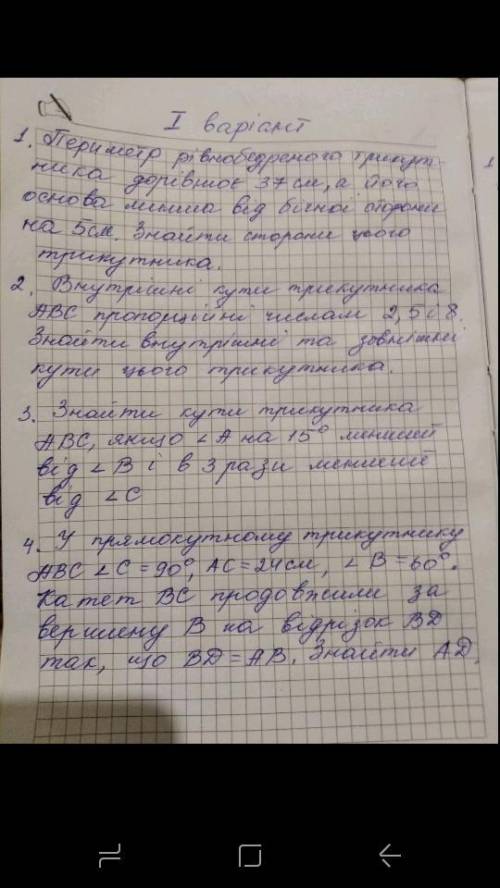 I варіант
1. Периметр рівнобедреного трикут-
ника дорівнює 37 см, а його
основа менша від бічної сторони
на 5см. Знайти сторони цього
трикутника.
2. Внутрішні кути трикутника
ABC пропорційні числам 2, 5 і 8.
Знайти внутрішні та зовнішні
кути цього трикутника.
3. Знайти кути трикутника
ABC, якщо ∠A на 15° менший
від ∠B і в 3 рази менший
від ∠C
4. У прямокутному трикутнику
ABC ∠C = 90°, AC = 24 см, ∠B = 60°.
Катет BC продовжили за
вершину B на відрізок BD
так, що BD = AB. Знайти AD.
1